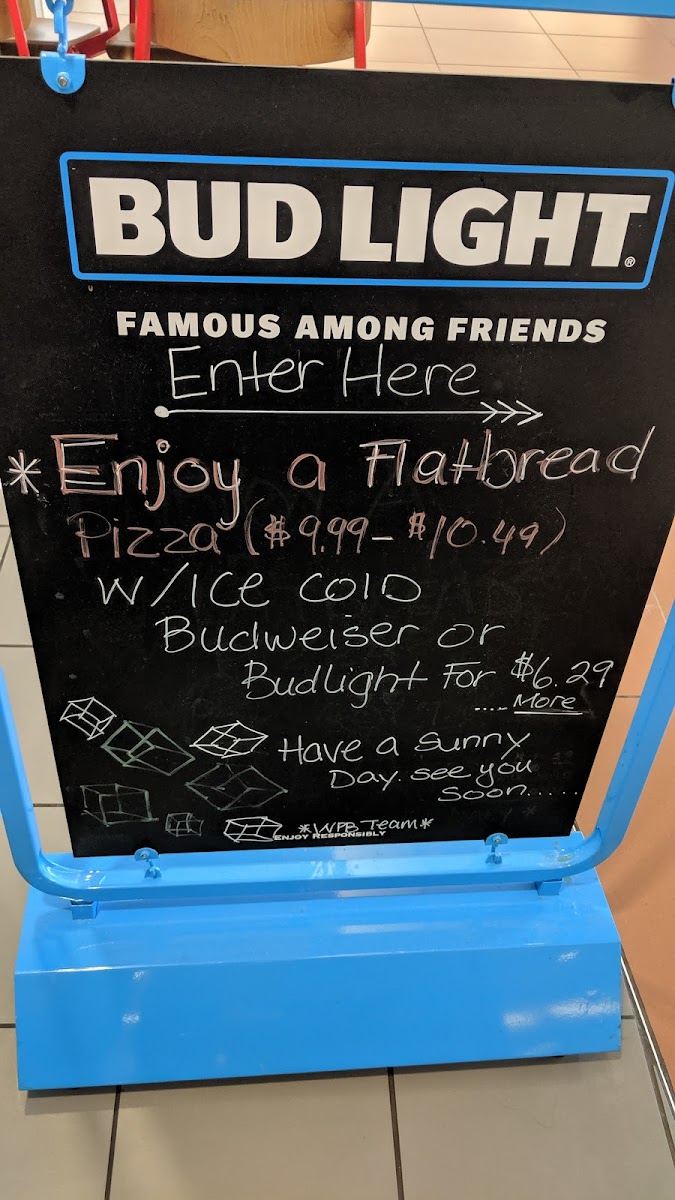 BUD LIGHT®
FAMOUS AMONG FRIENDS
Enter Here
*Enjoy a Flatbread
Pizza ($9.99-$10.49)
W/ICE COLD
Budweiser or
Budlight For $6.29
....More
Have a sunny
Day. see you
soon......
*WPB Team*
ENJOY RESPONSIBLY